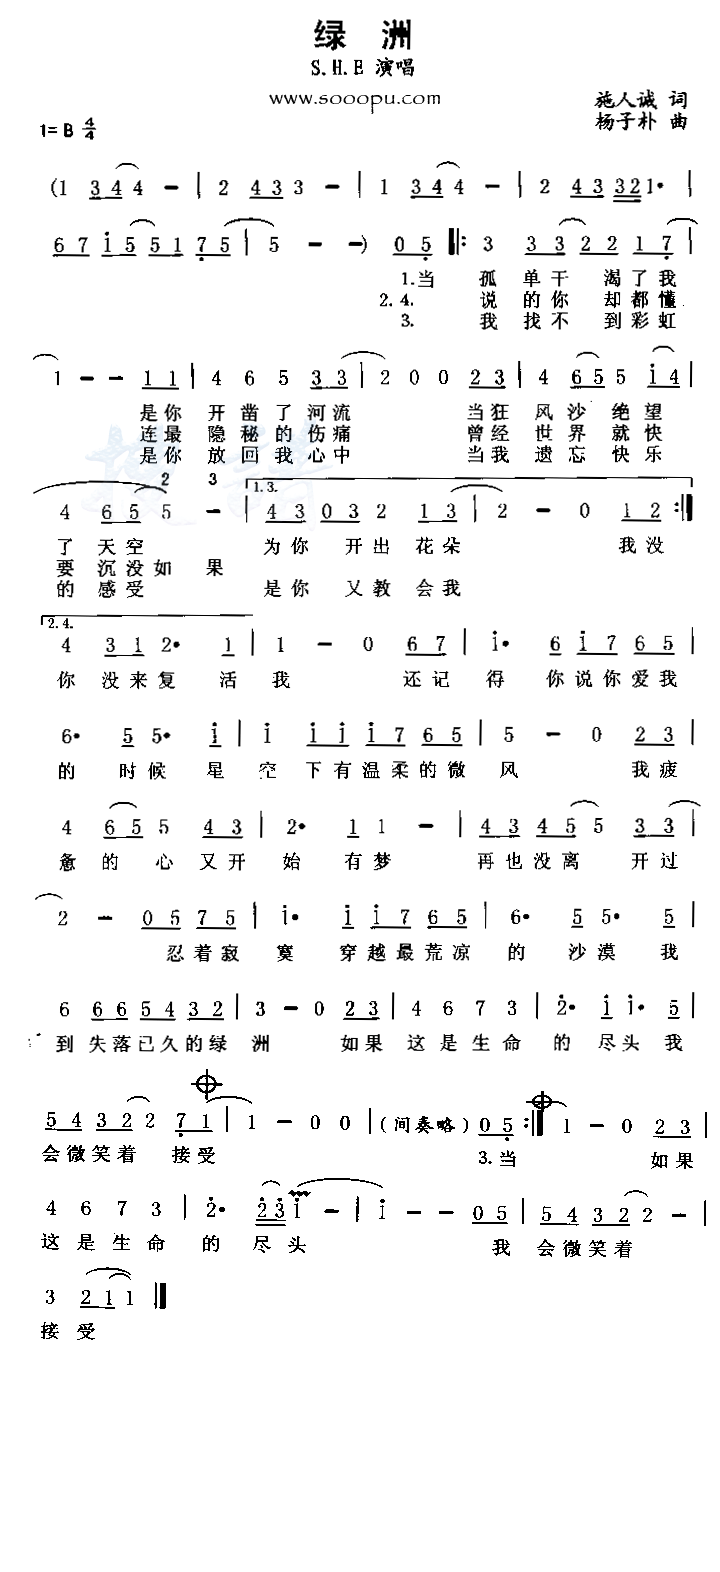 绿 洲
S.H.E 演唱
www.sooopu.com
施人诚 词
1= B 4/4
杨子朴 曲
(1 3 4 4 － | 2 4 3 3 － | 1 3 4 4 － | 2 4 3 3 2 1· |
6 7 i 5 5 1 7 5 | 5 － － ) 0 5 ‖: 3 3 3 2 2 1 7 |
1.当 孤 单 干 渴 了 我
2.4. 说 的 你 却 都 懂
3. 我 找 不 到 彩 虹
1 － － 1 1 | 4 6 5 3 3 | 2 0 0 2 3 | 4 6 5 5 i 4 |
是 你 开 凿 了 河 流 当 狂 风 沙 绝 望
连 最 隐 秘 的 伤 痛 曾 经 世 界 就 快
是 你 放 回 我 心 中 当 我 遗 忘 快 乐
2 3
1.3.
4 6 5 5 － | 4 3 0 3 2 1 3 | 2 － 0 1 2 :‖
了 天 空 为 你 开 出 花 朵 我 没
要 沉 没 如 果
的 感 受 是 你 又 教 会 我
2.4.
4 3 1 2· 1 | 1 － 0 6 7 | i· 6 i 7 6 5 |
你 没 来 复 活 我 还 记 得 你 说 你 爱 我
6· 5 5· i | i i i i 7 6 5 | 5 － 0 2 3 |
的 时 候 星 空 下 有 温 柔 的 微 风 我 疲
4 6 5 5 4 3 | 2· 1 1 － | 4 3 4 5 5 3 3 |
惫 的 心 又 开 始 有 梦 再 也 没 离 开 过
2 － 0 5 7 5 | i· i i 7 6 5 | 6· 5 5· 5 |
忍 着 寂 寞 穿 越 最 荒 凉 的 沙 漠 我
6 6 6 5 4 3 2 | 3 － 0 2 3 | 4 6 7 3 | 2· i i· 5 |
到 失 落 已 久 的 绿 洲 如 果 这 是 生 命 的 尽 头 我
5 4 3 2 2 7 1 | 1 － 0 0 | (间奏略) 0 5 :‖ 1 － 0 2 3 |
会 微 笑 着 接 受 3.当 如 果
4 6 7 3 | 2· 2 3 i － | i － － 0 5 | 5 4 3 2 2 － |
这 是 生 命 的 尽 头 我 会 微 笑 着
3 2 1 1 ‖
接 受